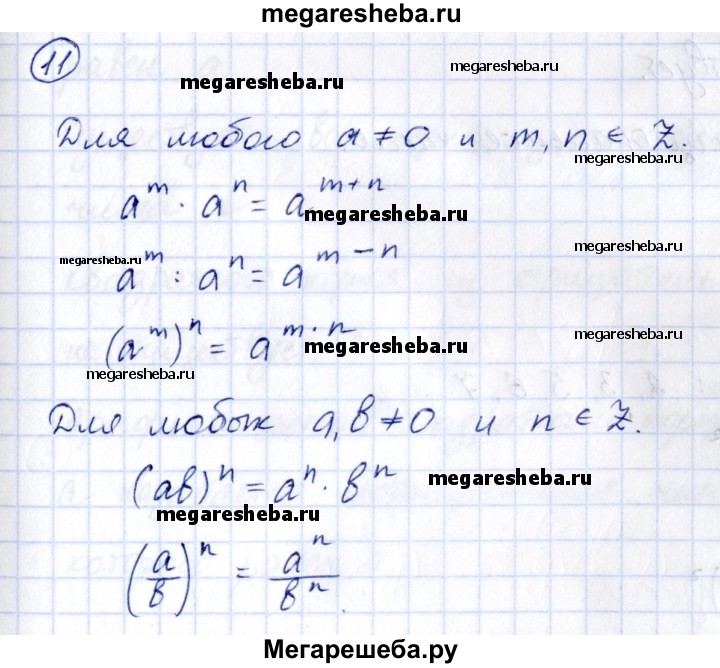 megaresheba.ru
11
megaresheba.ru
megaresheba.ru
Для любого a ≠ 0 и m, n ∈ Z.
megaresheba.ru
a^m · a^n = a^{m+n}
megaresheba.ru
megaresheba.ru
megaresheba.ru
a^m : a^n = a^{m-n}
megaresheba.ru
(a^m)^n = a^{m·n}
megaresheba.ru
megaresheba.ru
Для любых a, b ≠ 0 и n ∈ Z.
(ab)^n = a^n · b^n
megaresheba.ru
megaresheba.ru
(a/b)^n = a^n/b^n
Мегарешеба.ру